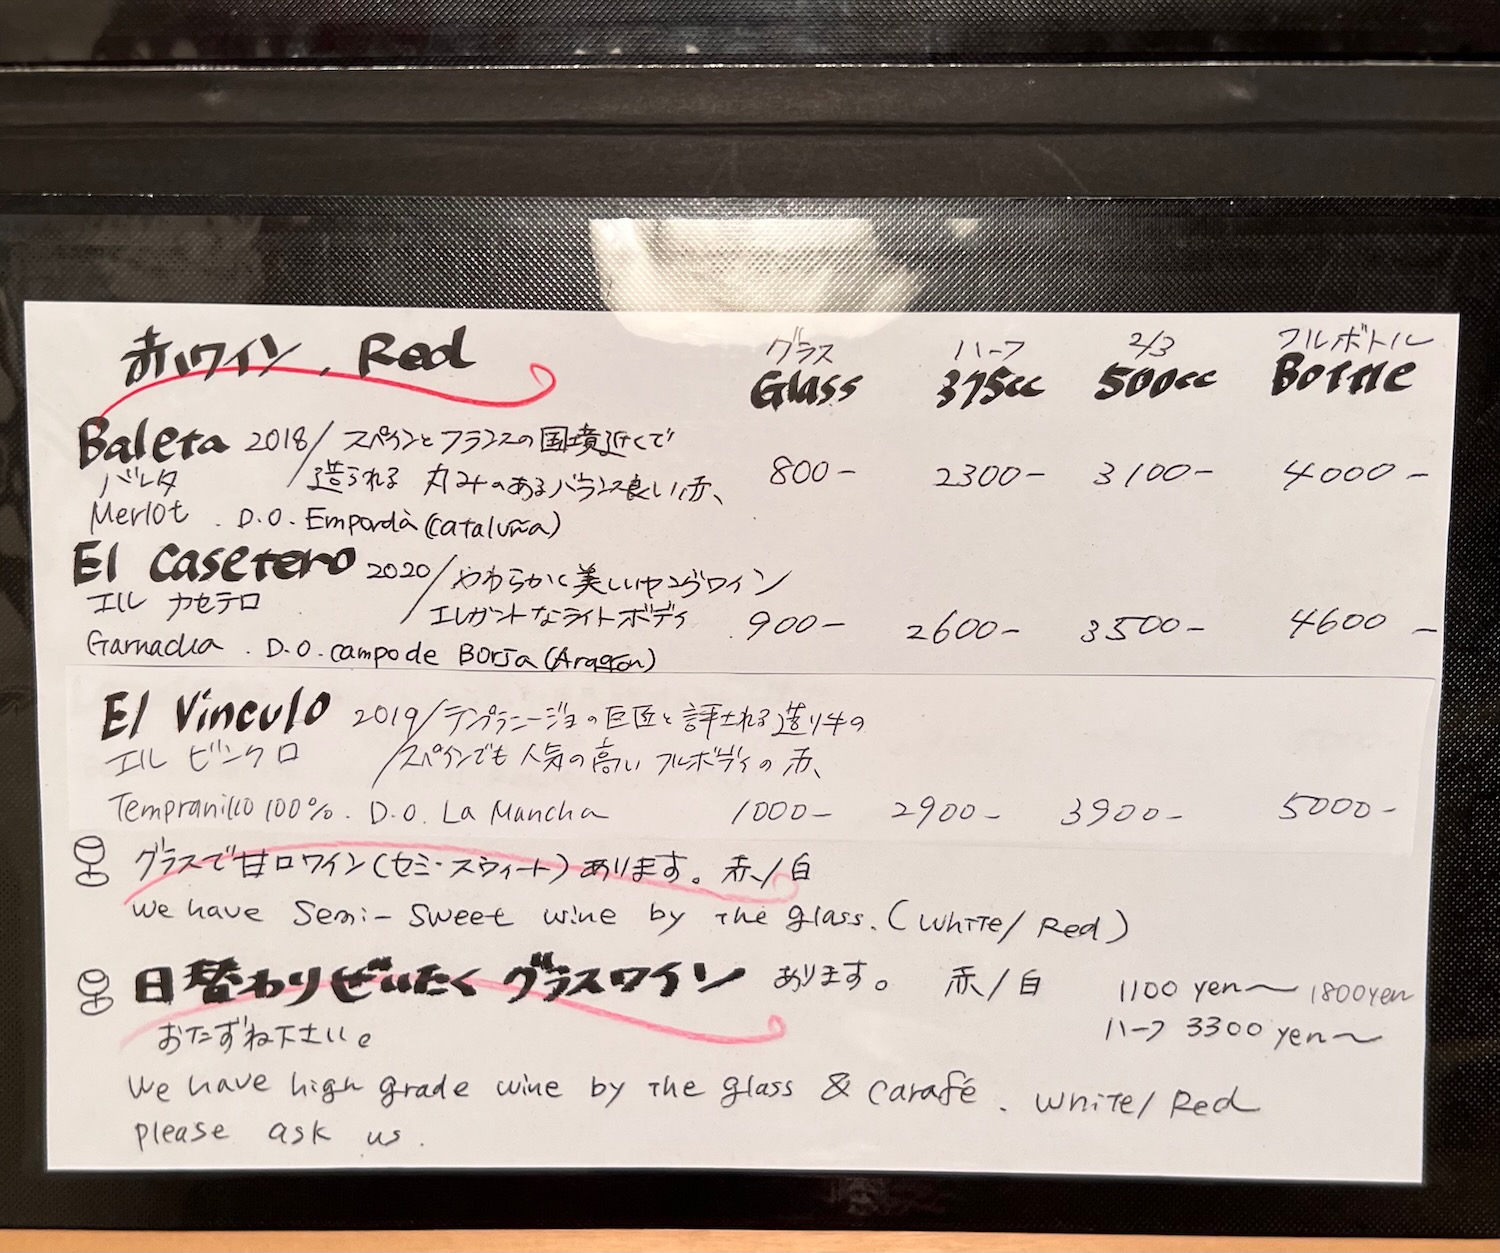 赤ワイン. Red
グラス ハーフ 2/3 フルボトル
Glass 375cc 500cc Bottle
Baleta 2018/スペインとフランスの国境近くで
バレタ /造られる 丸みのあるバランス良い赤、 800- 2300- 3100- 4000-
Merlot . D.O. Empordà (Cataluña)
El Casetero 2020/やわらかく美しいヤングワイン
エル カセテロ /エレガントなライトボディ 900- 2600- 3500- 4600-
Garnacha . D.O. Campo de Borja (Aragón)
El Vinculo 2019/テンプラニージョの巨匠と評される造り手の
エル ビンクロ /スペインでも人気の高いフルボディの赤、
Tempranillo 100%. D.O. La Mancha 1000- 2900- 3900- 5000-
グラスで甘口ワイン(セミ・スウィート)あります。赤/白
We have Semi-Sweet wine by the glass. (White/Red)
日替わりぜいたくグラスワイン あります。 赤/白 1100 yen〜1800yen
おたずね下さい。 ハーフ 3300 yen〜
We have high grade wine by the glass & Carafé. White/Red
please ask us.